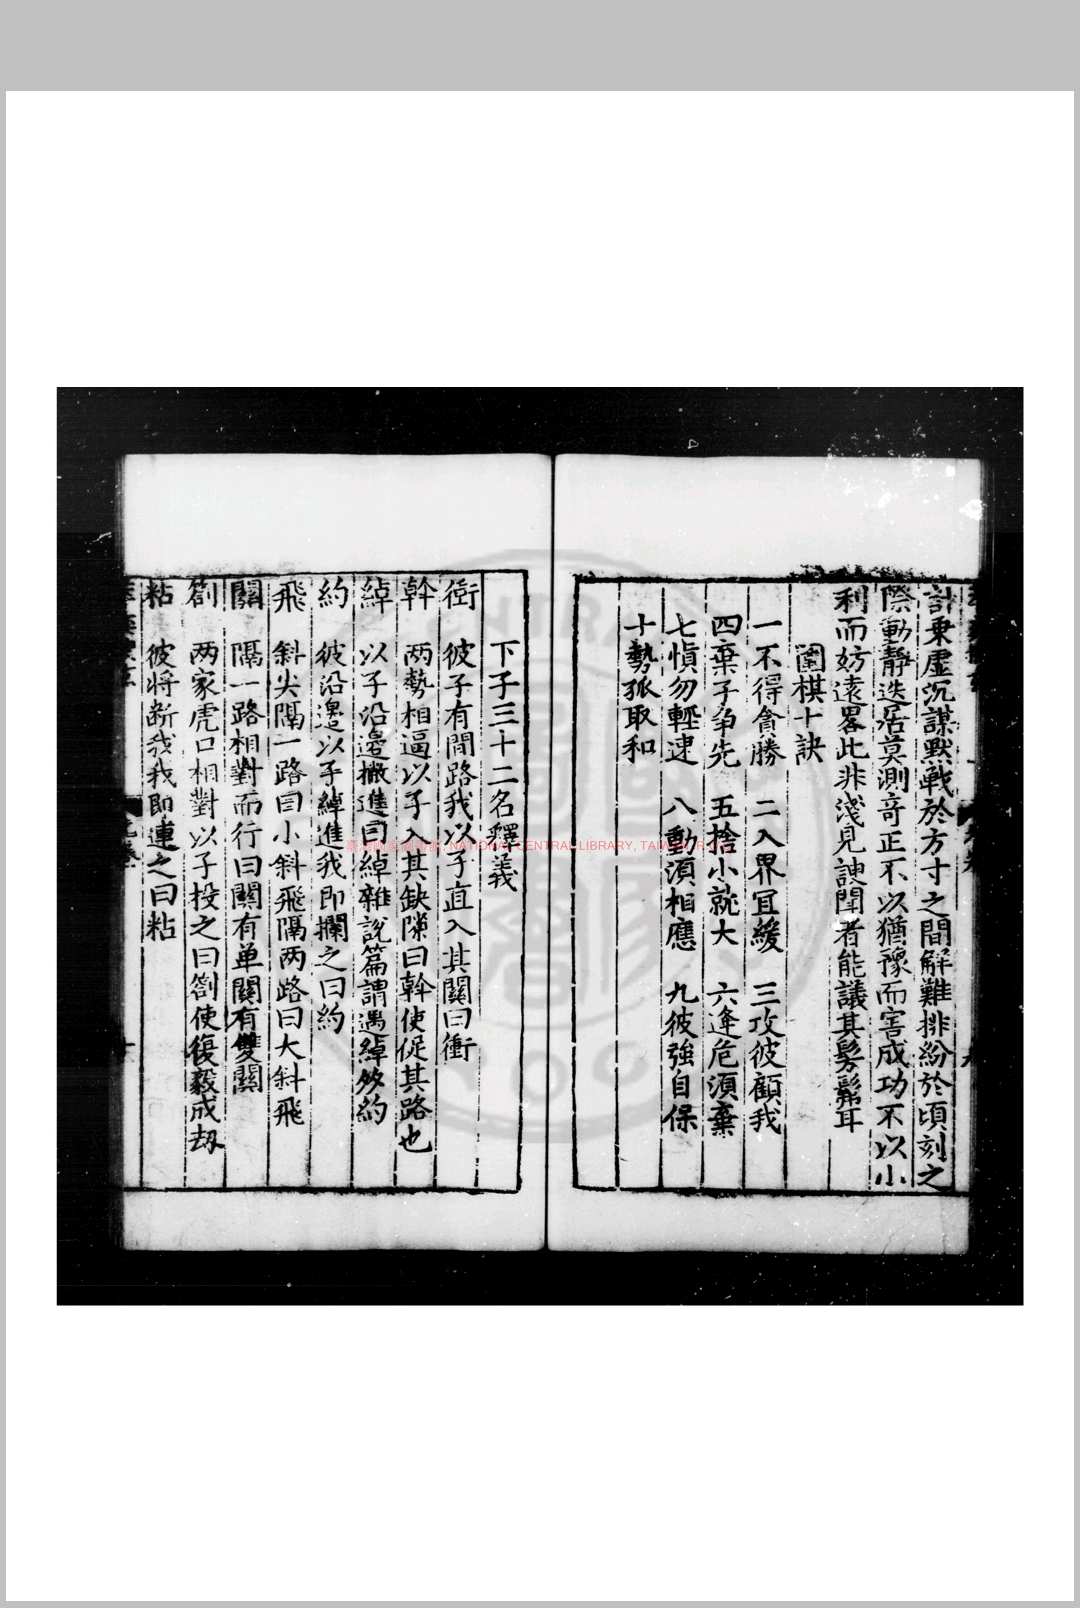 計秉虛沉謀默戰於方寸之間解難排紛於頃刻之
際動靜迭居莫測竒正不以猶豫而害成功不以小
利而妨遠畧此非淺見謏聞者能議其髣髴耳
圍棋十訣
一不得貪勝 二入界宜緩 三攻彼顧我
四棄子争先 五捨小就大 六逢危須棄
七慎勿輕速 八動須相應 九彼強自保
十勢孤取和
下子三十二名釋義
衝 彼子有間路我以子直入其關曰衝
幹 两勢相逼以子入其缺隙曰幹使促其路也
綽 以子沿邊撇進曰綽雜說篇謂遇綽多約
約 彼沿邊以子綽進我即攔之曰約
飛 斜尖隔一路曰小斜飛隔两路曰大斜飛
關 隔一路相對而行曰關有单關有雙關
劄 两家虎口相對以子投之曰劄使復毅成刼
粘 彼将断我我即連之曰粘
NATIONAL CENTRAL LIBRARY, TAIWAN, R.O.C.